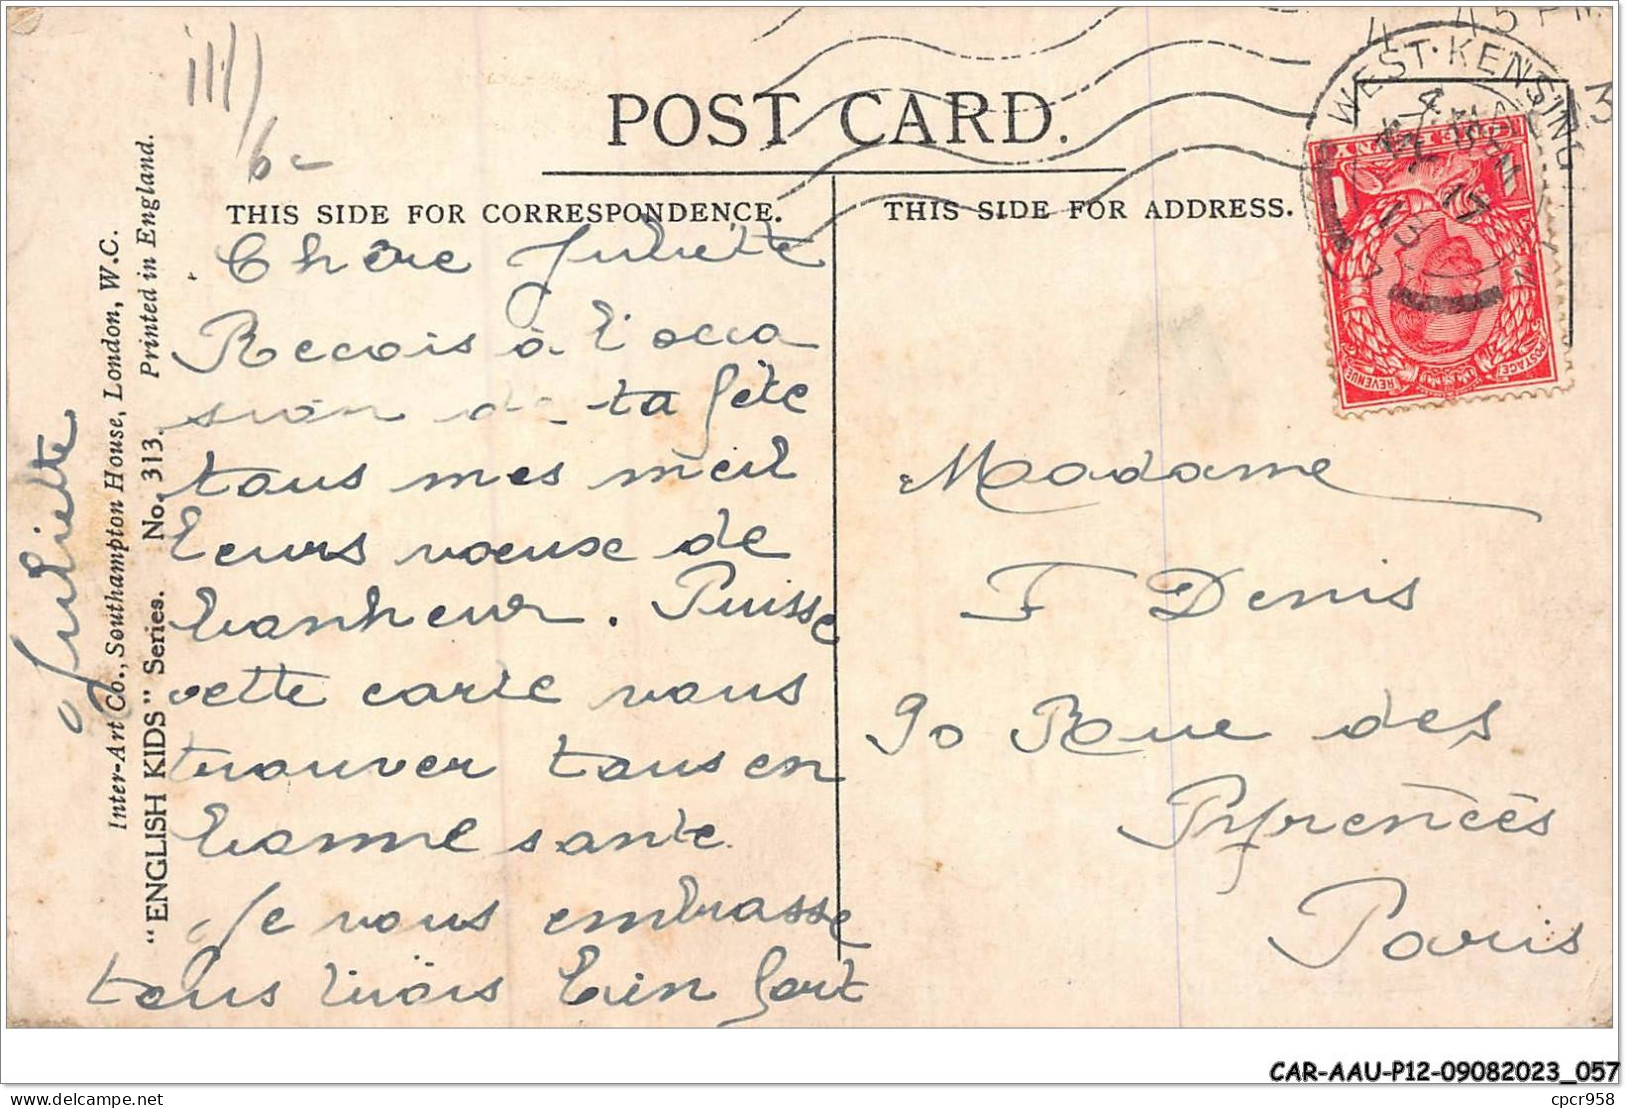 POST CARD.
THIS SIDE FOR CORRESPONDENCE.
THIS SIDE FOR ADDRESS.
WEST KENSING
4 45 PM
17
13
POSTAGE
REVENUE
Chère Juliette
Recois à l'occa
sion de ta fête
tous mes meil
leurs voeuxe de
bonheur. Puisse
cette carte vous
trouver tous en
bonne sante
Je vous embrasse
tous trois bien fort
Juliette
Madame
F Denis
90 Rue des
Pyrenées
Paris
Inter-Art Co., Southampton House, London, W.C.
"ENGLISH KIDS" Series. No. 313. Printed in England.
CAR-AAU-P12-09082023_057
cpcr958